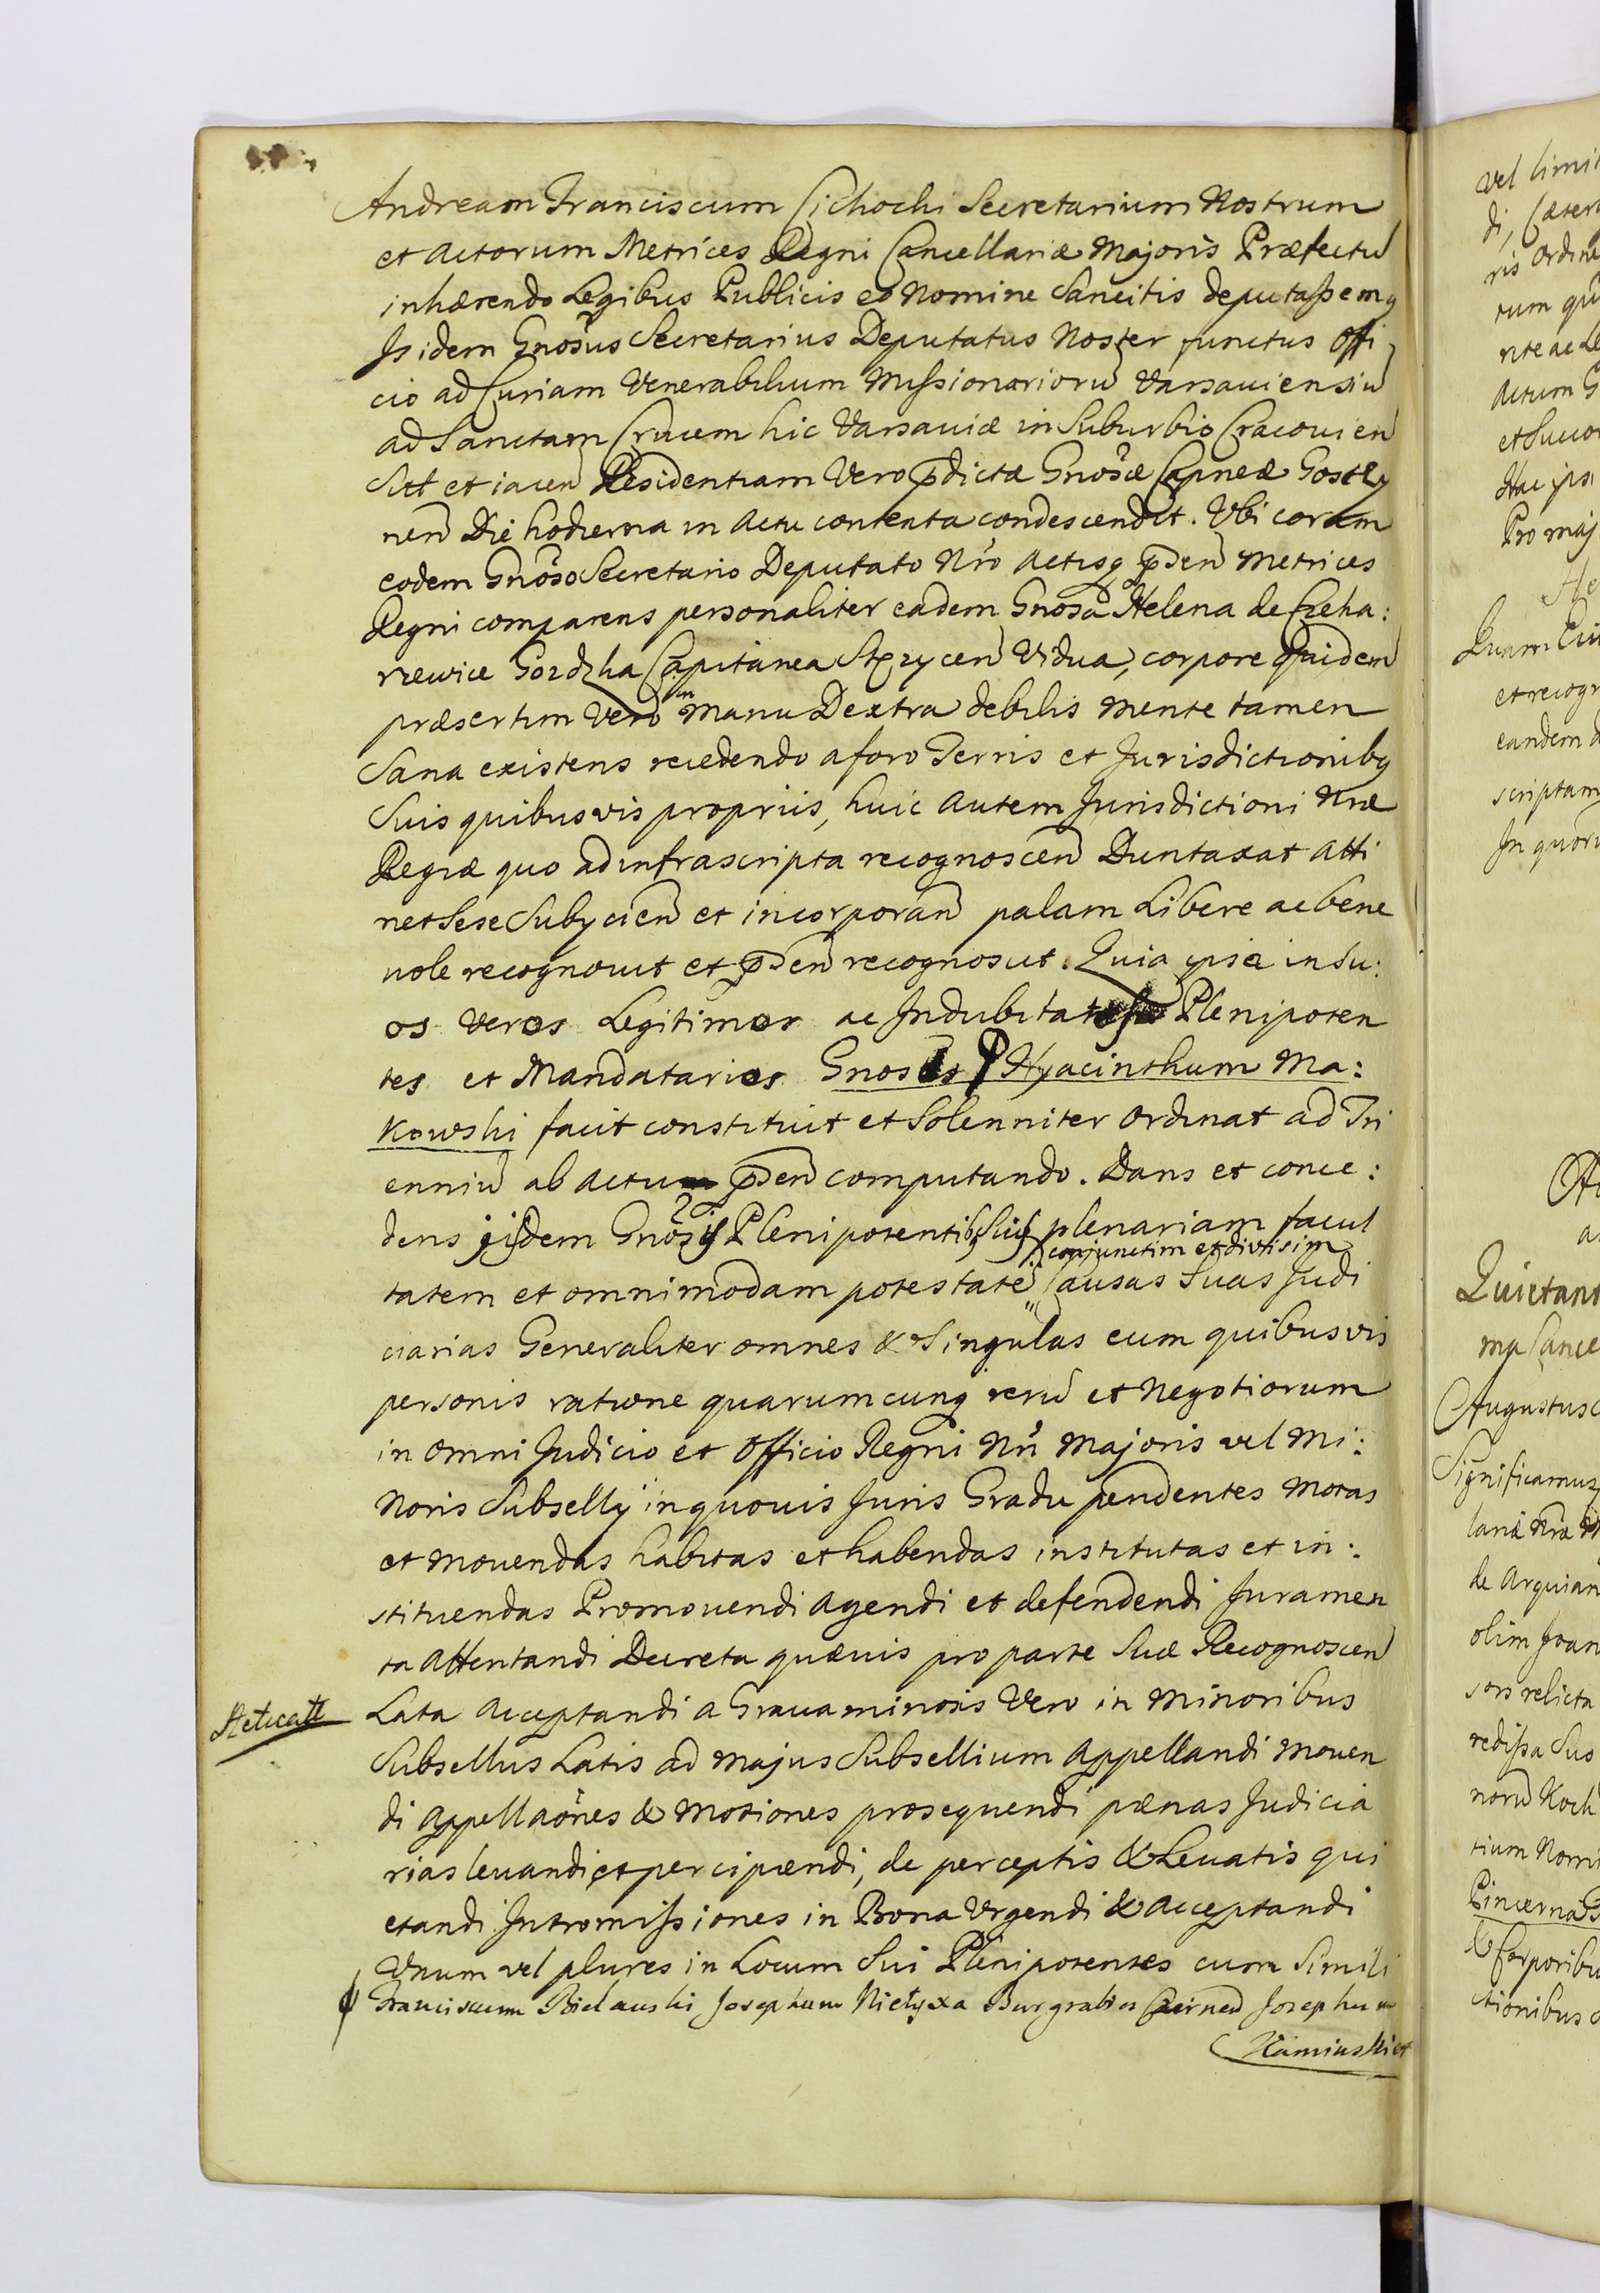 Andream Franciscum Cichocki Secretarium Nostrum
et Actorum Metrices Regni Cancellariæ Majoris Præfectũ
inhærendo Legibus Publicis eo Nomine Sancitis deputaſsemq
Is idem Gnõsus Secretarius Deputatus Noster functus Offi
cio ad Curiam Venerabilium Miſsionariorũ Varsauiensiũ
ad Sanctam Crucem hic Varsauiæ in Suburbio Cracouien
Sitt et iacen Residentiam Vero p̃dictæ Gnõsæ Capneæ Gosty
nen Die hodierna in Actu contenta condescendit. Vbi coram
eodem Gnõso Secretario Deputato Nro Actisq p̃sen Metrices
Regni comparens personaliter eadem Gnosa Helena de Czeka:
rzewice Gordzka Capitanea Stęzycen Vidua, corpore quidem
præsertim Vero in Manu Dextra debilis mente tamen
Sana existens recedendo a foro Terris et Jurisdictionibq
Suis quibusvis propriis, huic Autem Jurisdictioni Nræ
Regiæ quo ad infrascripta recognoscen Duntaxat Atti
net Sese Subycien et incorporan palam Libere ac bene
uole recognouit et p̃sen recognoscit. Quia ipsa in Su:
os Veros Legitimos ac Indubitatos Plenipoten
tes et Mandatarios Gnosos Hyacinthum Ma:
kowski facit constituit et Solenniter Ordinat ad Tri
enniũ ab Actu p̃sen computando. Dans et conce:
dens iisdem Gnõsis Plenipotentibq Suis plenariam facul
conjunctim et divisim
tatem et omnimodam potestatẽ Causas Suas Judi
ciarias Generaliter omnes & Singulas cum quibusvis
personis ratione quarumcunq rerũ et Negotiorum
in omni Judicio et Officio Regni Nri Majoris vel Mi:
noris Subselly in quouis Juris Gradu pendentes Motas
et mouendas habitas et habendas institutas et in:
stituendas Promouendi Agendi et defendendi Juramen
ta Attentandi Decreta quæuis pro parte Suæ Recognoscen
Lata Acceptandi a Grauaminosis Vero in Minoribus
Subselliis Latis ad Majus Subsellium Appellandi mouen
di Appellaõnes & Motiones prosequendi pænas Judicia
rias leuandi et percipiendi, de perceptis & Leuatis qui
etandi Intromiſsiones in Bona Vrgendi & Acceptandi
Vnum vel plures in Locum Sui Plenipotentes cum Simili
Franciscum Bielawski Josephum Josephum
Kaminski et
vel limi
ris Ordine
et Succes
Hac ips
Pro maj
et recogn
eandem d
scriptam
In quoru
Quietant
Augustus
Significamus
de
olim Joan
sors relicta
tium Nomi
Pincerna
Corporibu
ctionibus